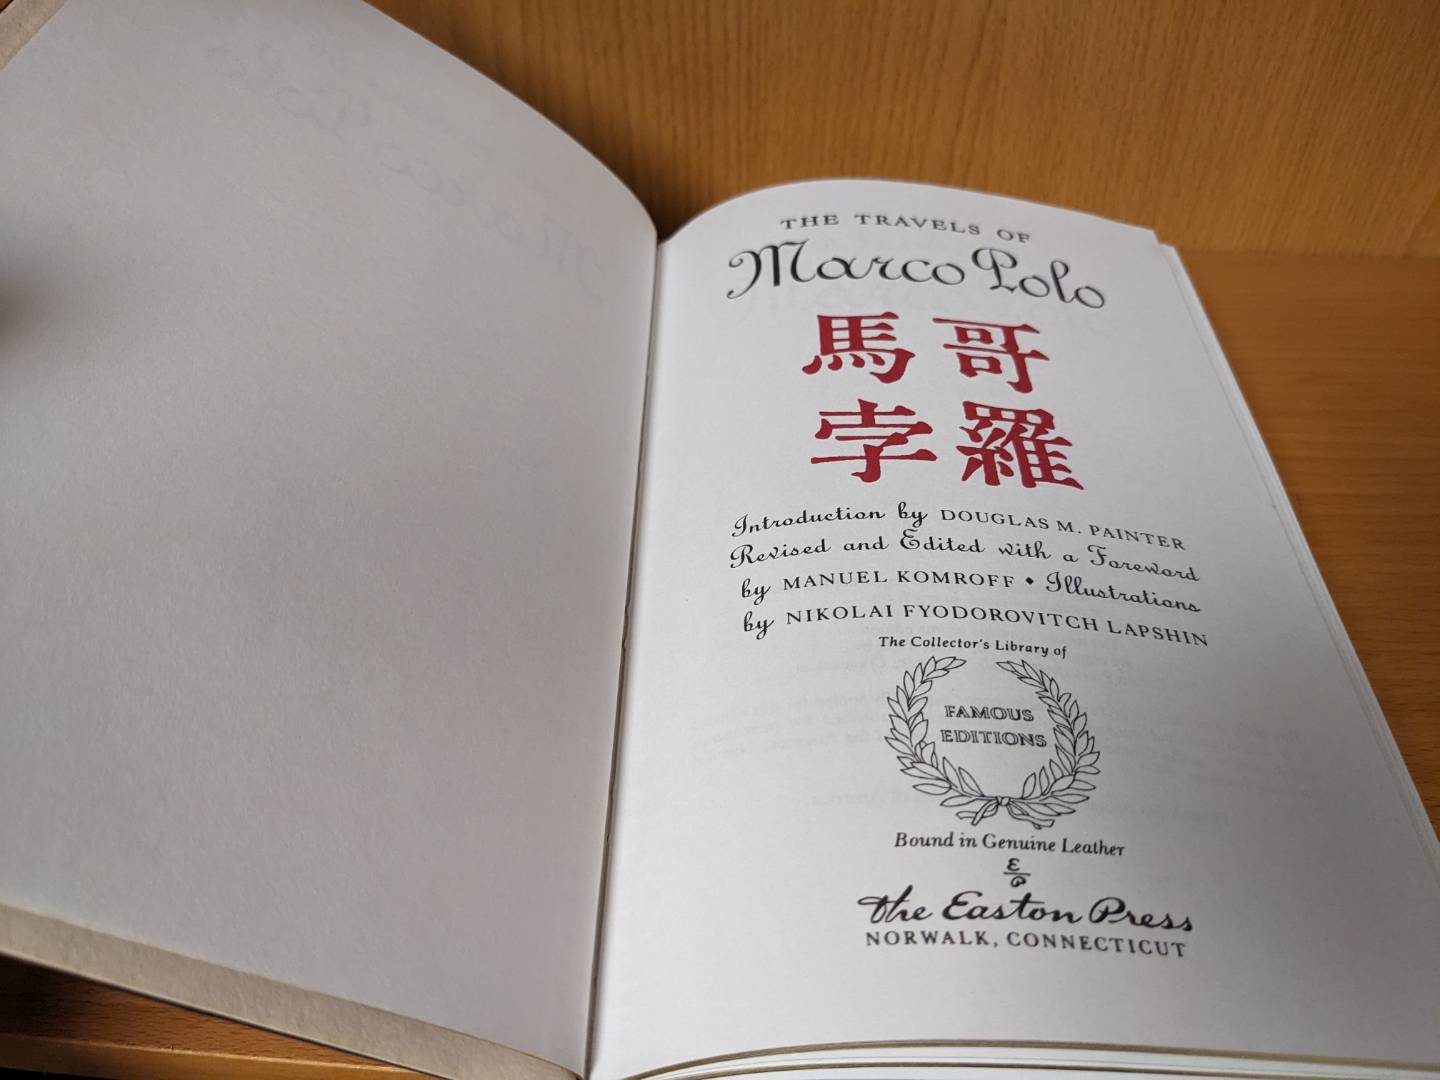 THE TRAVELS OF
Marco Polo
馬哥
孛羅
Introduction by DOUGLAS M. PAINTER
Revised and Edited with a Foreword
by MANUEL KOMROFF • Illustrations
by NIKOLAI FYODOROVITCH LAPSHIN
The Collector's Library of
FAMOUS
EDITIONS
Bound in Genuine Leather
E
P
The Easton Press
NORWALK, CONNECTICUT